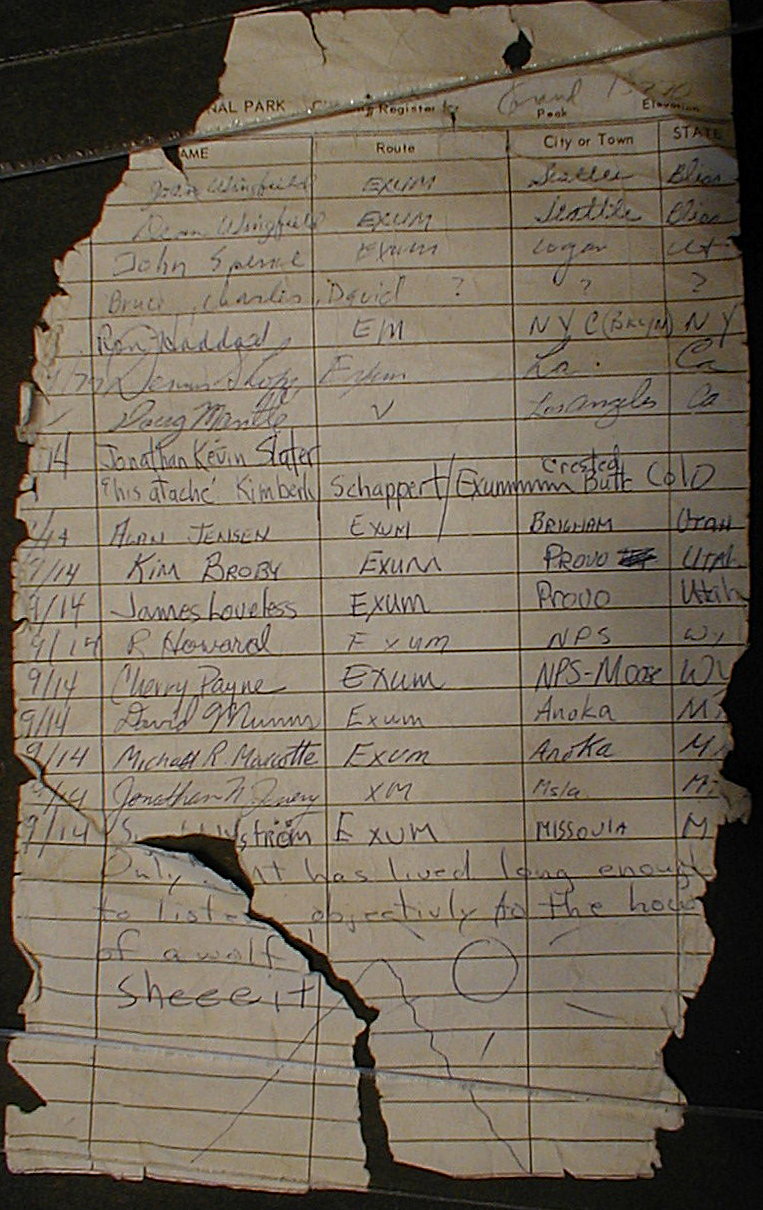 NAL PARK Register for Grand
Peak Elevation
AME Route City or Town STATE
Joan Wingfield EXUM Seattle
Dean Wingfield EXUM Seattle
John Spence Exum Logan Ut
Bruce, Charles, David ? ? ?
Ron Haddad EM N Y C (BKLYN) N Y
Exum La. Ca
Doug Mantle V Los Angeles Ca
14 Jonathan Kevin Slater
"his ataché" Kimberly Schappert / Exummmm Crested Butt Colo
/14 ALAN JENSEN EXUM BRIGHAM UTAH
9/14 KIM BROBY EXUM PROVO UTAH
9/14 James Loveless EXUM Provo Utah
9/14 R Howard Exum NPS Wy
9/14 Cherry Payne EXUM NPS-Moose Wy
9/14 David Exum Anoka M
9/14 Michael R. Marcotte EXUM Anoka M
/14 Jonathan N XM Msla M
9/14 ström EXUM MISSOULA M
Only nt has lived long enough
to listen objectivly to the howl
of a wolf
Sheeeit